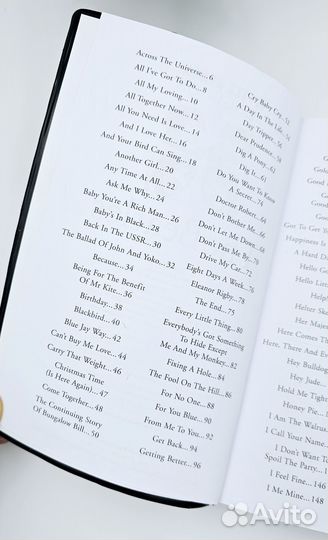 Across The Universe...6
All I've Got To Do...8
All My Loving...10
All Together Now...12
All You Need Is Love...14
And I Love Her...16
And Your Bird Can Sing...18
Another Girl...20
Any Time At All...22
Ask Me Why...24
Baby You're A Rich Man...26
Baby's In Black...28
Back In The USSR...30
The Ballad Of John And Yoko...32
Because...34
Being For The Benefit
Of Mr Kite...36
Birthday...38
Blackbird...40
Blue Jay Way...42
Can't Buy Me Love...44
Carry That Weight...46
Christmas Time
(Is Here Again)...47
Come Together...48
The Continuing Story
Of Bungalow Bill...50
Cry Baby Cry...51
A Day In The Life...
Day Tripper...56
Dear Prudence...58
Dig A Pony...
Dig It...61
Do You Want To Know
A Secret...
Doctor Robert...
Don't Bother Me...
Don't Let Me Down...
Don't Pass Me By...
Drive My Car...
Eight Days A Week...
Eleanor Rigby...78
The End...75
Every Little Thing...80
Everybody's Got Something
To Hide Except
Me And My Monkey...82
Fixing A Hole...84
The Fool On The Hill...86
For No One...88
For You Blue...90
From Me To You...92
Get Back...94
Getting Better...96
Good
Good
Got To Get
Happiness I
A Hard D
Hello
Hello Little
Help
Helter Skel
Her Maj
Here Comes Th
Here, There And E
Hey Bulldog
Hey Jude...
Hold Me Tight
Honey Pie...
I Am The Walrus
I Call Your Name
I Don't Want To
Spoil The Party...
I Feel Fine...146
I Me Mine...148
Avito